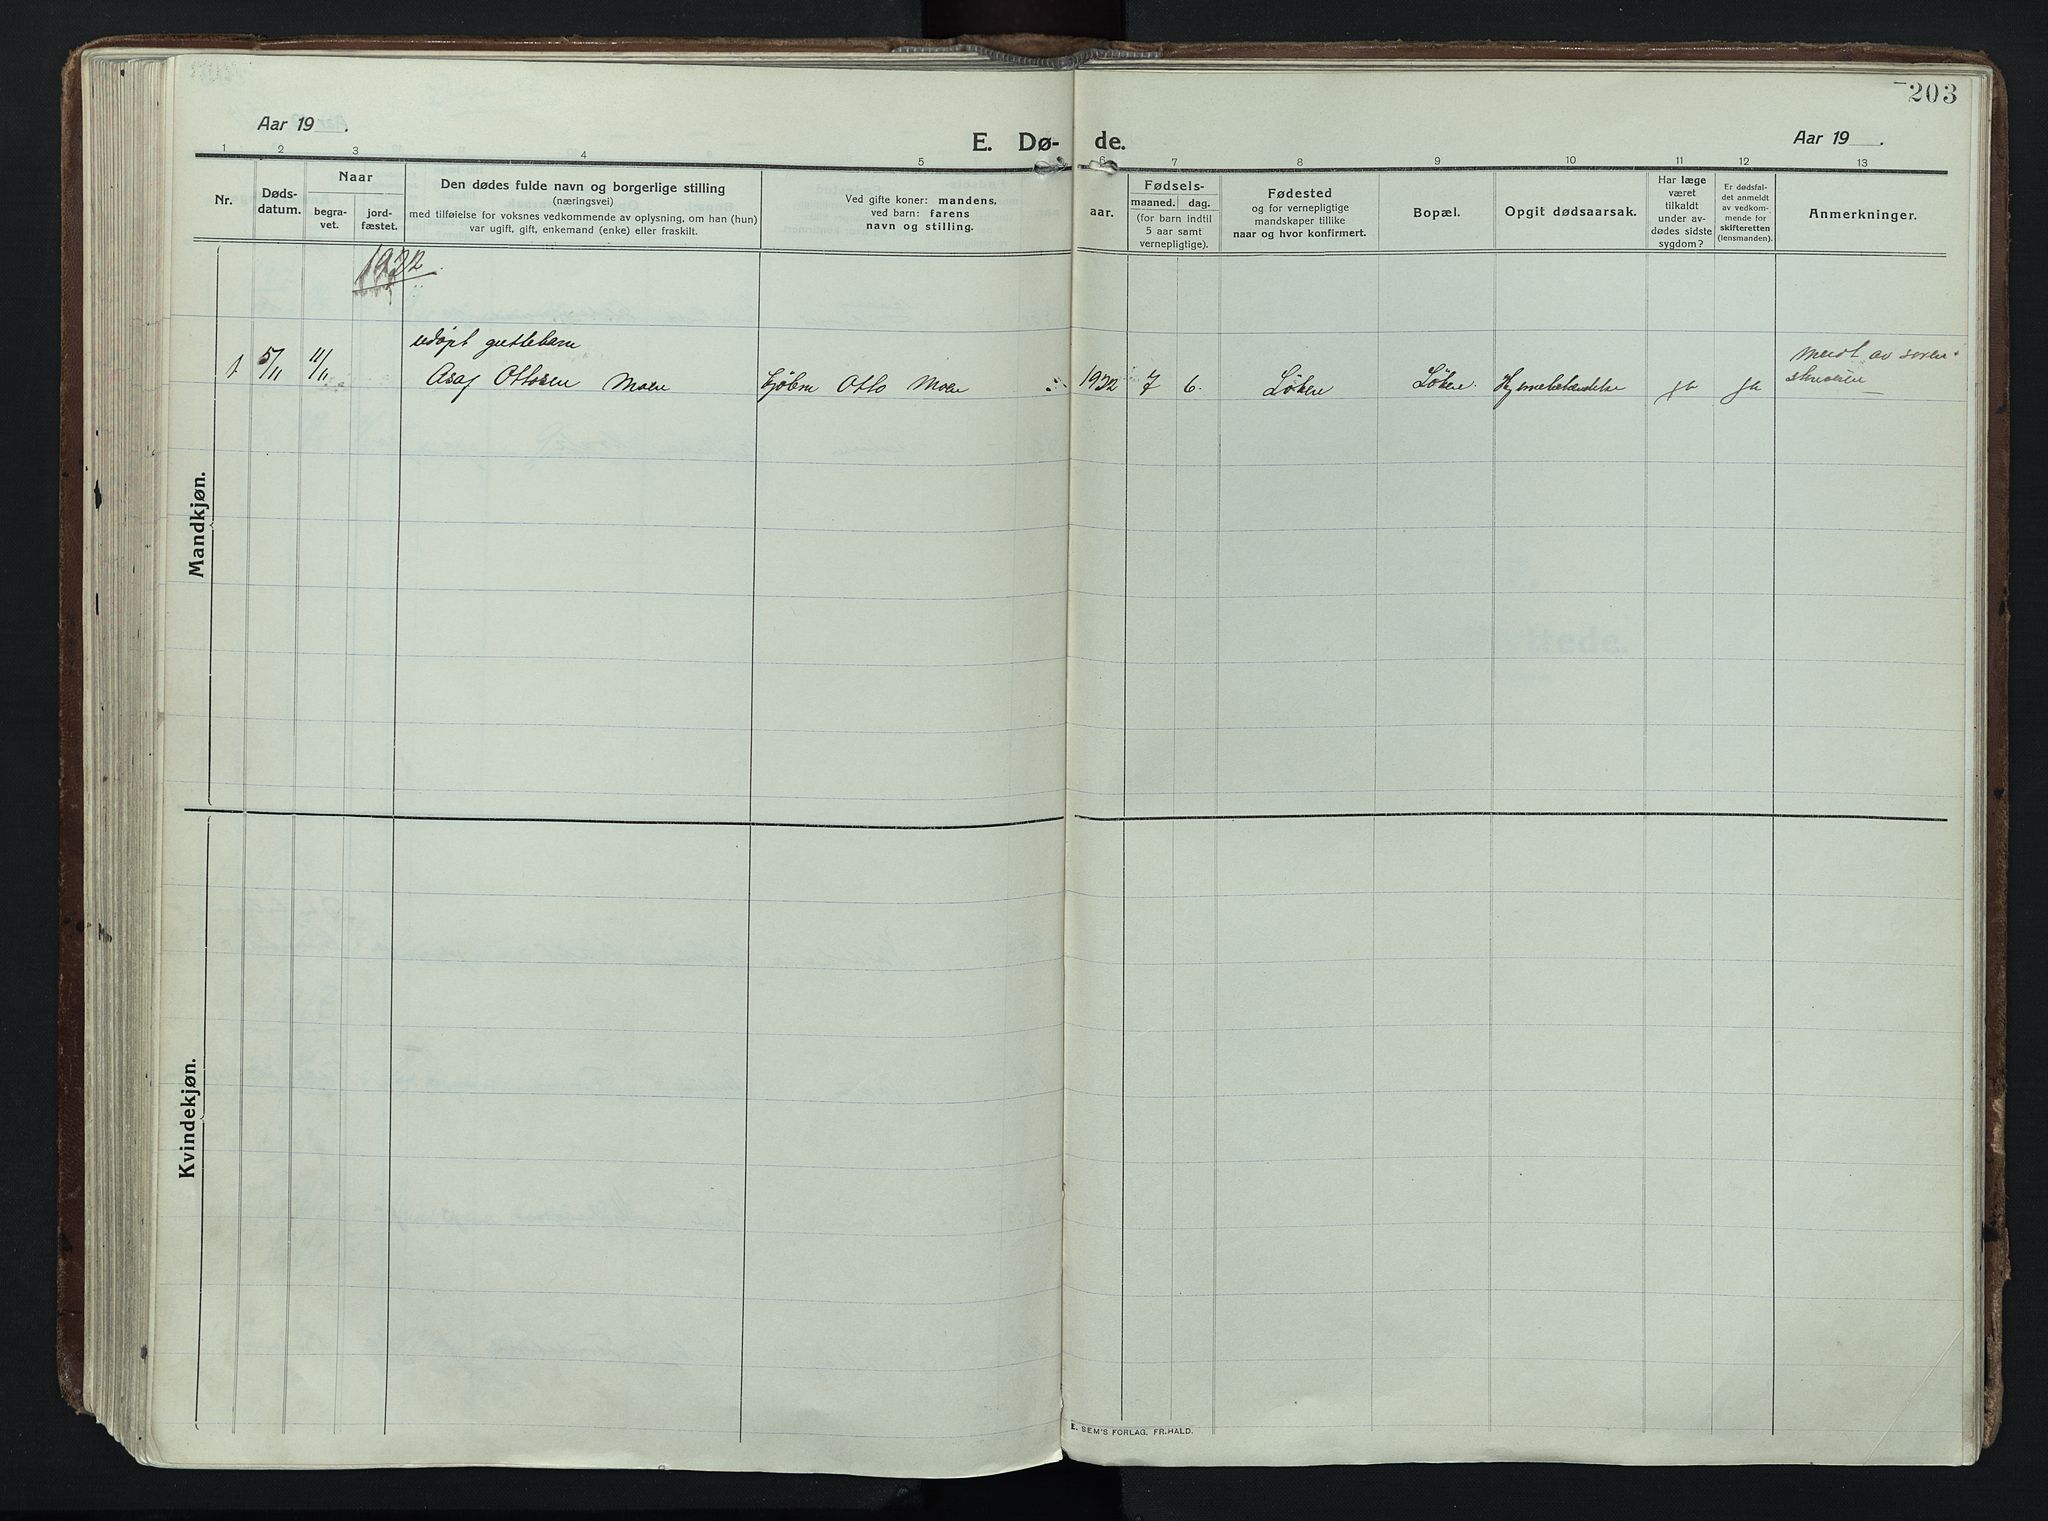 203
Aar 19 .
E. Dø- de.
Aar 19 .
1 2 3 4 5 6 7 8 9 10 11 12 13
Nr.
Døds-
datum.
Naar
begra-
vet.
jord-
fæstet.
Den dødes fulde navn og borgerlige stilling
(næringsvei)
med tilføielse for voksnes vedkommende av oplysning, om han (hun)
var ugift, gift, enkemand (enke) eller fraskilt.
Ved gifte koner: mandens,
ved barn: farens
navn og stilling.
aar.
Fødsels-
maaned. dag.
(for barn indtil
5 aar samt
vernepligtige).
Fødested
og for vernepligtige
mandskaper tillike
naar og hvor konfirmert.
Bopæl.
Opgit dødsaarsak.
Har læge
været
tilkaldt
under av-
dødes sidste
sygdom?
Er dødsfal-
det anmeldt
av vedkom-
mende for
skifteretten
(lensmanden).
Anmerkninger.
1932
udøpt guttebarn
1 5/11 11/11 Asaf Ottosen Moen Kjøbm Otto Moen 1932 7 6. Løken Løken. Hjernebetændelse ja ja
Meldt av soren-
skriveren
Mandkjøn.
Kvindekjøn.
E. SEM'S FORLAG, FR.HALD.